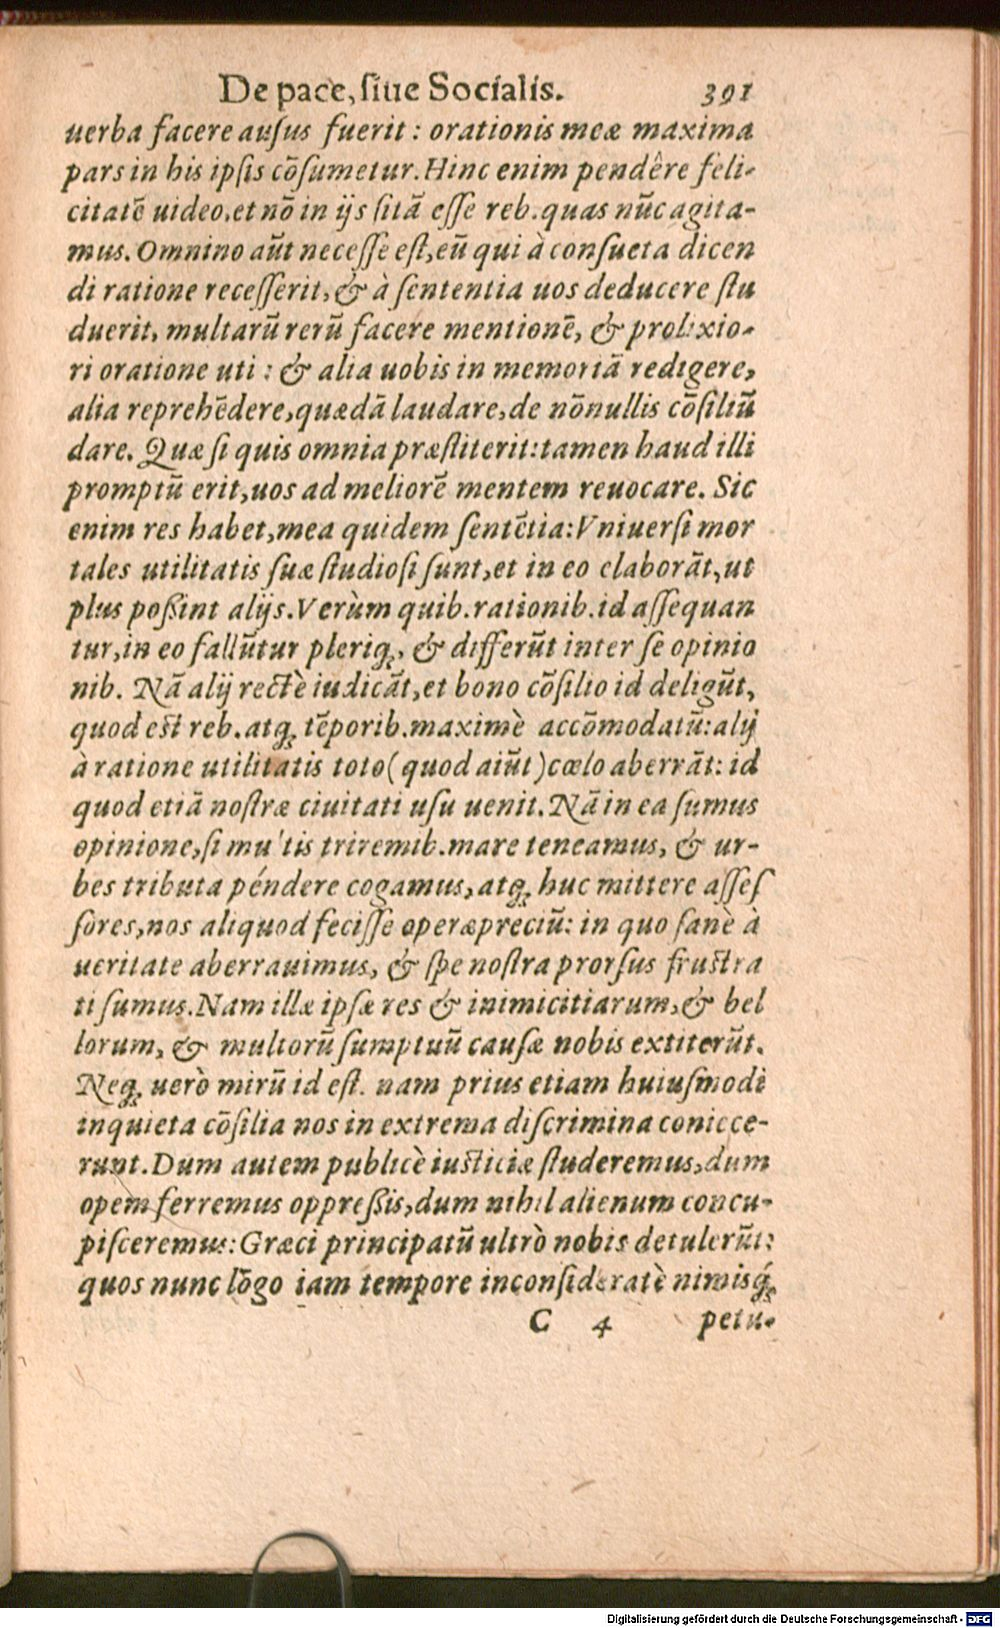 De pace, ſiue Socialis. 391
uerba facere auſus fuerit : orationis meæ maxima
pars in his ipſis cõſumetur. Hinc enim pendêre feli-
citatẽ uideo, et nõ in ijs ſitã eſſe reb. quas nũc agita-
mus. Omnino aũt neceſſe eſt, eũ qui à conſueta dicen
di ratione receſſerit, & à ſententia uos deducere ſtu
duerit, multarũ rerũ facere mentionẽ, & prolixio-
ri oratione uti : & alia uobis in memoriã redigere,
alia reprehẽdere, quædã laudare, de nõnullis cõſiliũ
dare. Quæ ſi quis omnia præſtiterit: tamen haud illi
promptũ erit, uos ad meliorẽ mentem reuocare. Sic
enim res habet, mea quidem ſentẽtia: Vniuerſi mor
tales utilitatis ſuæ ſtudioſi ſunt, et in eo elaborãt, ut
plus poßint alijs. Verùm quib. rationib. id aſſequan
tur, in eo fallũtur pleriq́;, & differũt inter ſe opinio
nib. Nã alij rectè iudicãt, et bono cõſilio id deligũt,
quod est reb. atq; tẽporib. maximè accõmodatũ: alij
à ratione utilitatis toto (quod aiũt) cœlo aberrãt: id
quod etiã noſtræ ciuitati uſu uenit. Nã in ea ſumus
opinione, ſi mu'tis triremib. mare teneamus, & ur-
bes tributa péndere cogamus, atq; huc mittere aſſeſ
ſores, nos aliquod feciſſe operæpreciũ: in quo ſanè à
ueritate aberrauimus, & ſpe noſtra prorſus fruſtra
ti ſumus. Nam illæ ipſæ res & inimicitiarum, & bel
lorum, & multorũ ſumptuũ cauſæ nobis extiterũt.
Neq; uerò mirũ id eſt. nam prius etiam huiuſmodi
inquieta cõſilia nos in extrema diſcrimina coniece-
runt. Dum autem publicè iuſticiæ ſtuderemus, dum
opem ferremus oppreßis, dum nihil alienum concu-
piſceremus: Græci principatũ ultrò nobis detulerũt:
quos nunc lõgo iam tempore inconſideratè nimisq́;
C 4 petu-
Digitalisierung gefördert durch die Deutsche Forschungsgemeinschaft - DFG